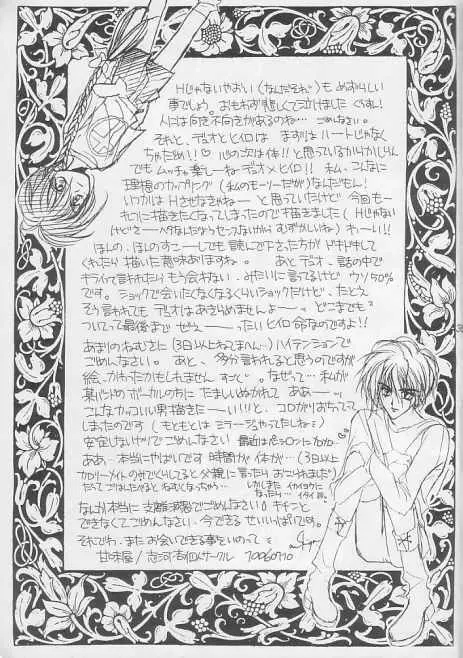 Hじゃないやおい(なんだそれ)も めずらしい
事でしょう。おもわず悲しくて泣けました くすん!
人には向き不向きがあるのね… ごめんなさい。
それと、デュオとヒロは まずはハートじゃなく
ちゃだめ!!♡ 心の次は体!! と思っている
でも ムッチャ楽しーね デュオ×ヒイロ!! 私、こんなに
理想のカップリング(私のモーソーだが)なんだもん!
いつかは Hさせなきゃねー と思っていたけど 今回も
描きたくなってしまったので描きました(Hじゃない
けどさー Hなんだよう センスないから むずかしいね) わーい!!
ほんの、ほんのすこーしでも 読んで下さった方が ドキドキして
くれたら 描いた意味ありますね。 あと デュオ、話の中で
キライって言われたら もう会わない みたいに言ってるけど ウソ50%
です。ショックで会いたくなくなるくらいショックだけど、たとえ
そう言われても デュオはあきらめませんよー どこまでも
ついてって最後まで ぜえーったい ヒイロ命なのですよ!!
あまりのねむさに(3日以上ねてまへん)ハイテンションで
ごめんなさい。あと、多分言われると思うのですが
絵、かわったかもしれません すーごく。なぜって…私が
某バンドの ボーカルの方に たましいぬかれて ああー
こんなカッコいい男描きたーい!!!と、コロがりおちてって
しまったのです(もともとは ミラージュやってたしね)
安定しないヤツで ごめんなさい
ああ、本当にやばいです 時間が 体が…(3日以上
カロリーメイトのみでくらしてると父親に言ったら おこられました)
なんか本当に 支離滅裂でごめんなさい。キチンと
できなくてごめんなさい、今できる せいいっぱいです。
それでわ、また お会いできる事をいのって
甘味屋/志河吉個人サークル